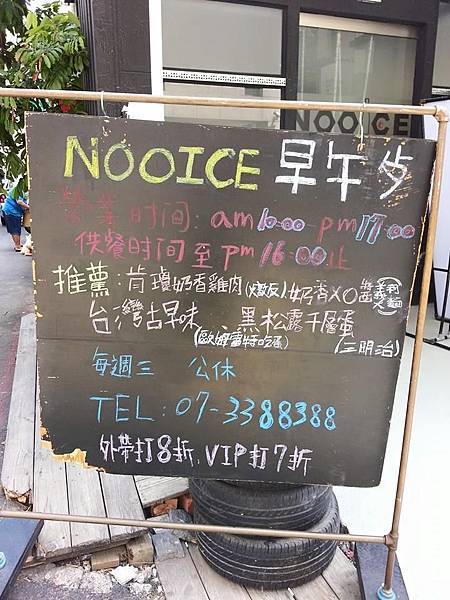 NOOICE
NOOICE 早午夕
營業时间: am10:00-pm17:00
供餐时间至pm16:00止
推薦:肯瓊奶香雞肉(燉反)奶香XO
台灣古早味 黑松露千層蛋
(歐姆雷特吃蛋) (三明治)
每週三 公休
TEL:07-3388388
外帶打8折,VIP打7折